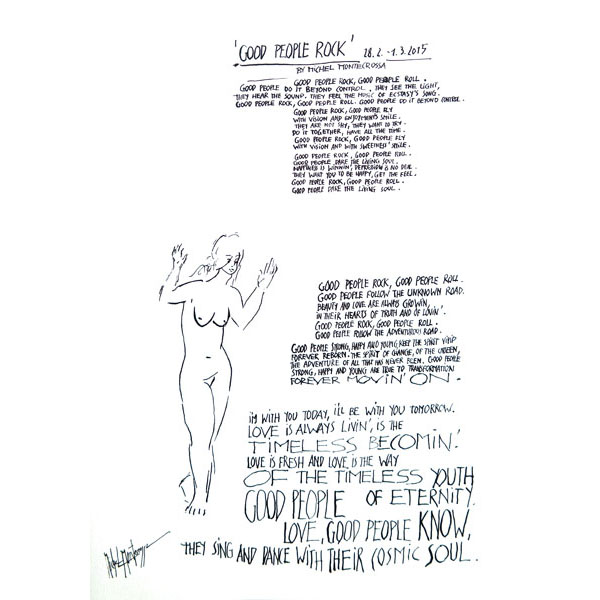 'GOOD PEOPLE ROCK' 28.2.-1.3.2015
BY MICHEL MONTECROSSA
GOOD PEOPLE ROCK, GOOD PEOPLE ROLL.
GOOD PEOPLE DO IT BEYOND CONTROL. THEY SEE THE LIGHT,
THEY HEAR THE SOUND. THEY FEEL THE MUSIC OF ECSTASY'S SONG.
GOOD PEOPLE ROCK, GOOD PEOPLE ROLL. GOOD PEOPLE DO IT BEYOND CONTROL.
GOOD PEOPLE ROCK, GOOD PEOPLE FLY
WITH VISION AND ENJOYMENTS SMILE.
THEY ARE NOT SHY, THEY WANT TO TRY.
DO IT TOGETHER, HAVE ALL THE TIME.
GOOD PEOPLE ROCK, GOOD PEOPLE FLY
WITH VISION AND WITH SWEETNESS' SMILE.
GOOD PEOPLE ROCK, GOOD PEOPLE ROLL.
GOOD PEOPLE DARE THE LIVING SOUL.
HAPPINESS IS WINNIN', DEPRESSION IS NO DEAL.
THEY WANT YOU TO BE HAPPY, GET THE FEEL.
GOOD PEOPLE ROCK, GOOD PEOPLE ROLL.
GOOD PEOPLE DARE THE LIVING SOUL.
GOOD PEOPLE ROCK, GOOD PEOPLE ROLL.
GOOD PEOPLE FOLLOW THE UNKNOWN ROAD.
BEAUTY AND LOVE ARE ALWAYS GROWIN,
IN THEIR HEARD OF TRUTH AND OF LOVIN'.
GOOD PEOPLE ROCK, GOOD PEOPLE ROLL.
GOOD PEOPLE FOLLOW THE ADVENTUROUS ROAD.
GOOD PEOPLE STRONG, HAPPY AND YOUNG, KEEP THE SPIRIT VIVID
FOREVER REBORN. THE SPIRIT OF CHANGE, OF THE UNSEEN,
THE ADVENTURE OF ALL THAT HAS NEVER BEEN. GOOD PEOPLE
STRONG, HAPPY AND YOUNG ARE TRUE TO TRANSFORMATION
FOREVER MOVIN' ON.
I'M WITH YOU TODAY, I'LL BE WITH YOU TOMORROW.
LOVE IS ALWAYS LIVIN', IS THE
TIMELESS BECOMIN'.
LOVE IS FRESH AND LOVE IS THE WAY
OF THE TIMELESS YOUTH
GOOD PEOPLE OF ETERNITY.
LOVE, GOOD PEOPLE KNOW,
THEY SING AND DANCE WITH THEIR COSMIC SOUL.